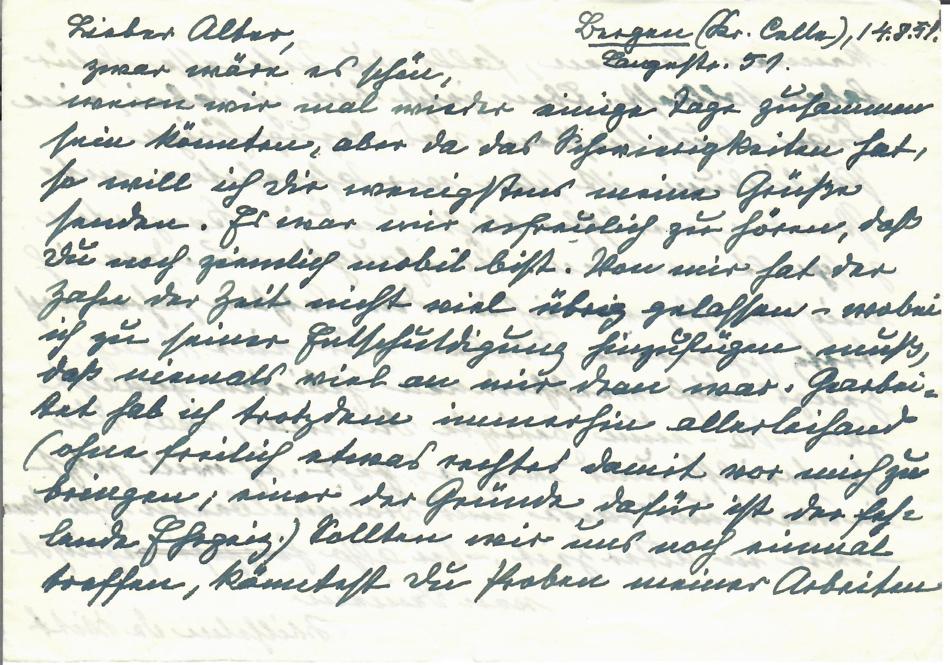 Lieber Alter,
Bergen (Kr. Celle), 14.8.51.
Langestr. 51.
zwar wäre es schön,
wenn wir mal wieder einige Tage zusammen
sein könnten, aber da das Schwierigkeiten hat,
so will ich Dir wenigstens meine Grüße
senden. Es war mir erfreulich zu hören, daß
Du noch ziemlich mobil bist. Von mir hat der
Zahn der Zeit nicht viel übrig gelassen - wobei
ich zu seiner Entschuldigung hinzufügen muß,
daß niemals viel an mir dran war. Gearbei-
tet hab ich trotzdem immerhin allerleihand
(ohne freilich etwas rechtes damit vor mich zu
bringen; einer der Gründe dafür ist der feh-
lende Ehrgeiz.) Sollten wir uns noch einmal
treffen, könntest Du Proben meiner Arbeiten